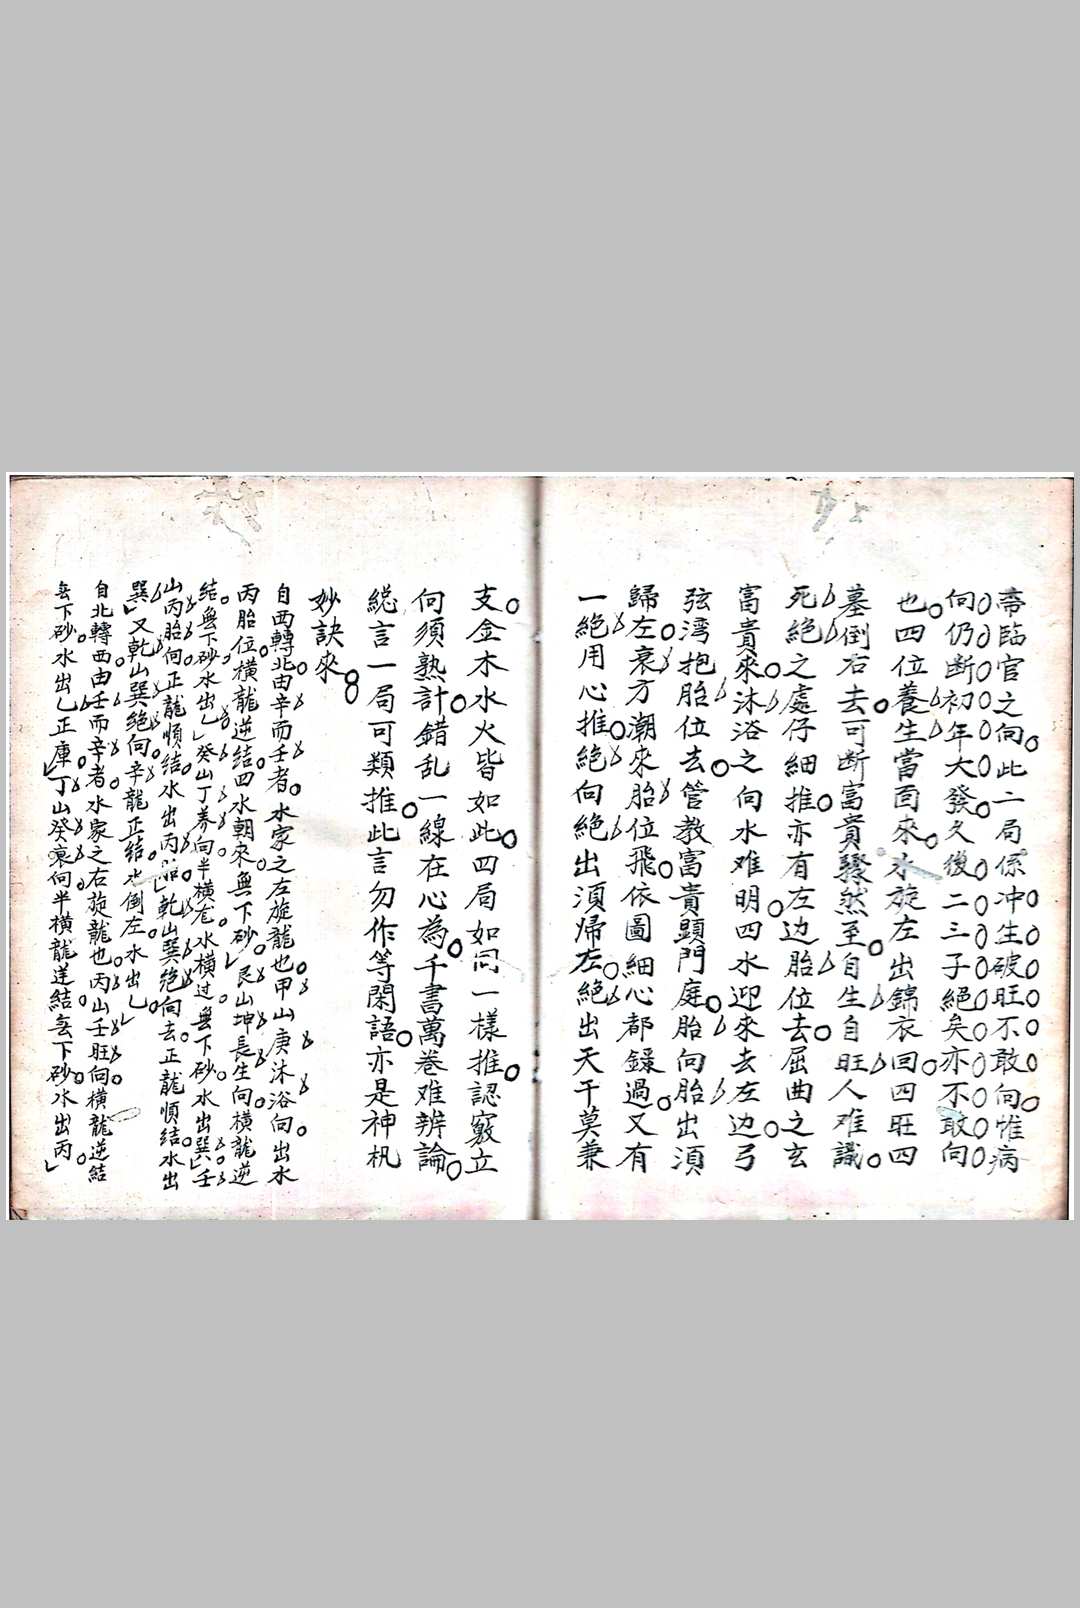 帝臨官之向此二局係冲生破旺不敢向惟病
向仍断初年大發久後二三子絕矣亦不敢向
也四位養生當面來水旋左出錦衣回四旺四
墓倒右去可断富貴驟然至自生自旺人难識
死絕之處仔細推亦有左边胎位去屈曲之玄
富貴來沐浴之向水难明四水迎來去左边弓
弦湾抱胎位去管教富貴顕門庭胎向胎出湏
歸左衰方潮來胎位飛依圖細心都錄過又有
一絕用心推絕向絕出湏帰左絕出天干莫兼
支金木水火皆如此四局如同一樣推認竅立
向須熟計錯乱一線在心為千書萬卷难辨論
総言一局可類推此言勿作等閑語亦是神机
妙訣來
自西轉北由辛而壬者水家之左旋龍也甲山庚沐浴向出水
丙胎位横龍逆结四水朝來無下砂艮山坤長生向横龍逆
结無下砂水出乚癸山丁养向半横左水横过無下砂水出巽壬
山丙胎向正龍順结水出丙乾山巽绝向去正龍順结水出
巽又乾山巽绝向辛龍正结水倒左水出乚
自北轉西由壬而辛者水家之右旋龍也丙山壬旺向横龍逆结
無下砂水出乚正庫丁山癸衰向半横龍逆结無下砂水出丙